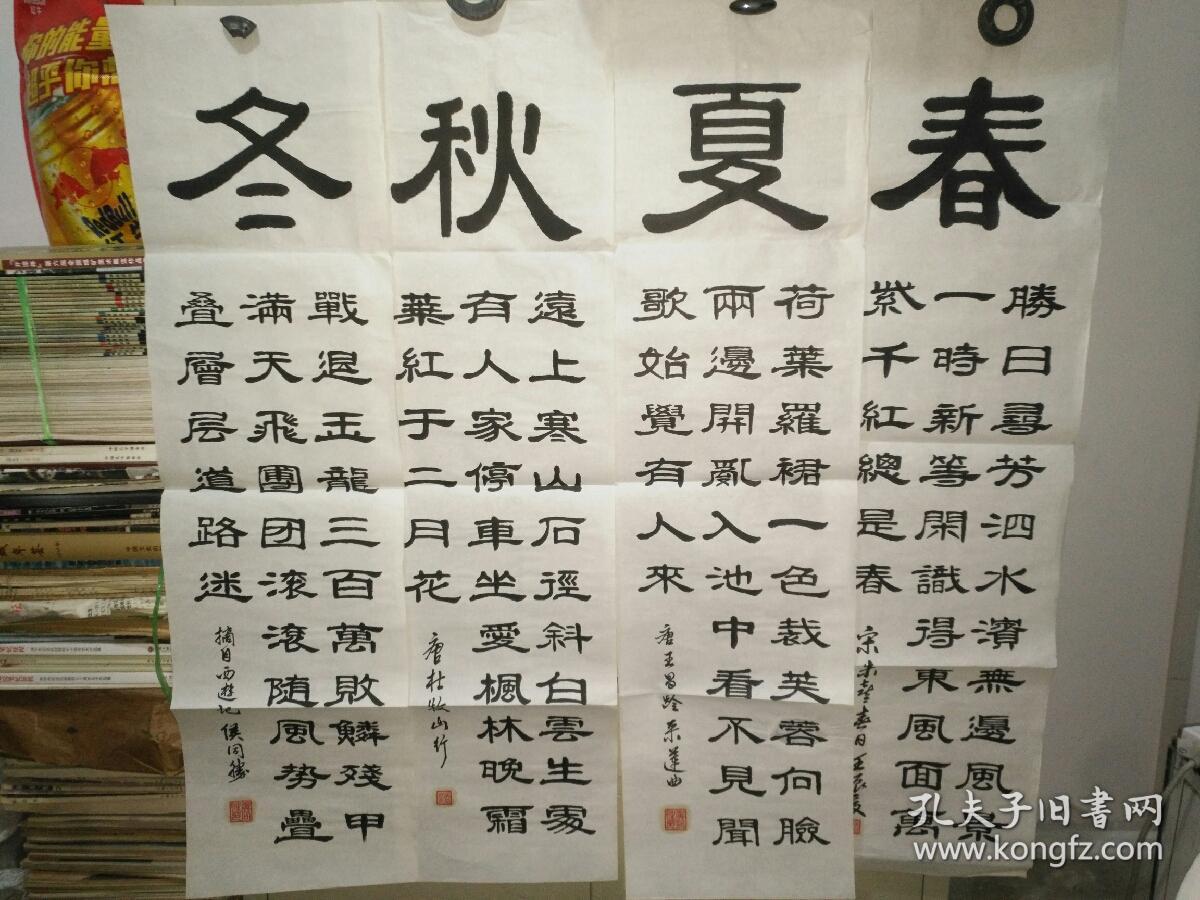 春
勝日尋芳泗水濱無邊風景
一時新等閑識得東風面萬
紫千紅總是春
宋朱熹春日
夏
荷葉羅裙一色裁芙蓉向臉
兩邊開亂入池中看不見聞
歌始覺有人來
唐王昌齡采蓮曲
秋
遠上寒山石徑斜白雲生處
有人家停車坐愛楓林晚霜
葉紅于二月花
唐杜牧山行
冬
戰退玉龍三百萬敗鱗殘甲
满天飛團团滚滾随風势疊
叠層层道路迷
摘自西遊记侯同勝
你的能量
超乎你
RedBull
孔夫子旧书网
www.kongfz.com